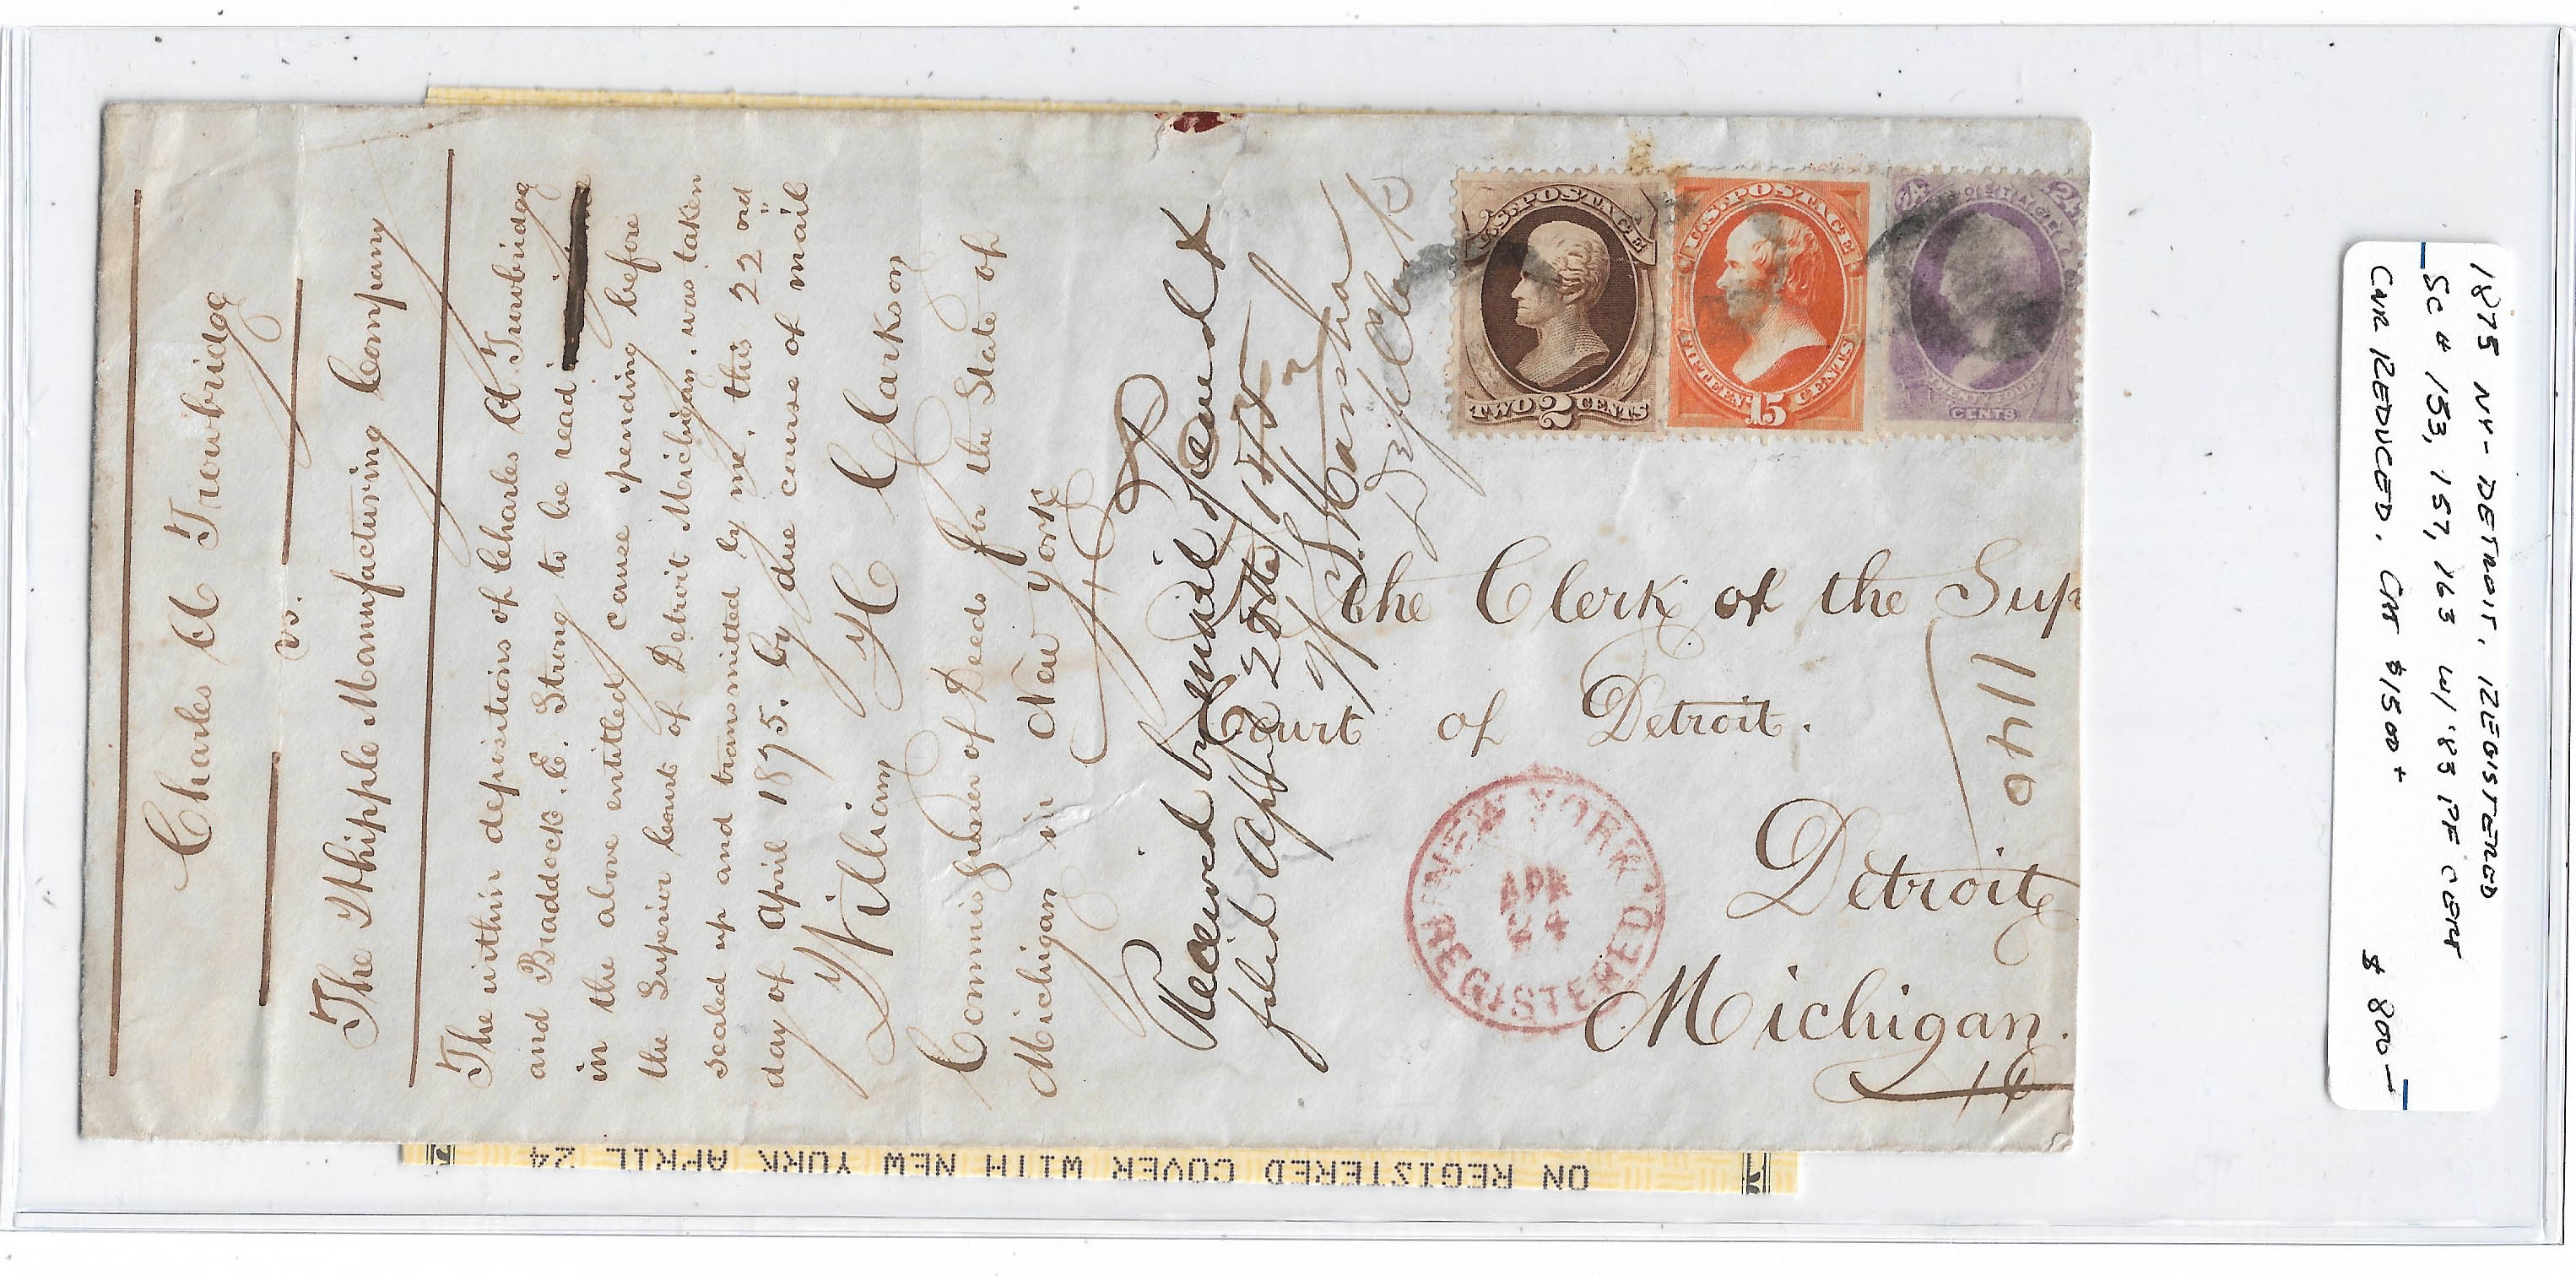 Charles A Trowbridge
vs.
The Whipple Manufacturing Company
The within depositions of Charles A Trowbridge
and Braddock E. Strong to be read
in the above entitled cause pending before
the Superior Court of Detroit Michigan. was taken
sealed up and transmitted by me. this 22 nd
day of April 1875. by due course of mail
William H C Clarkson
Commissioner of Deeds for the State of
Michigan in New York
Received by mail opened &
filed April 28th 1875
Dep Clerk
U.S. POSTAGE
TWO 2 CENTS
U.S. POSTAGE
FIFTEEN 15 CENTS
24 U.S. POSTAGE 24
TWENTY FOUR
CENTS
The Clerk of the Sup
Court of Detroit.
Detroit
Michigan.
1140
16
NEW YORK
APR
24
REGISTERED
ON REGISTERED COVER WITH NEW YORK APRIL 24
1875 NY - DETROIT, REGISTERED
Sc # 153, 157, 163 w/ '83 PF CERT
CNR REDUCED. CAT $1500+
$ 800-